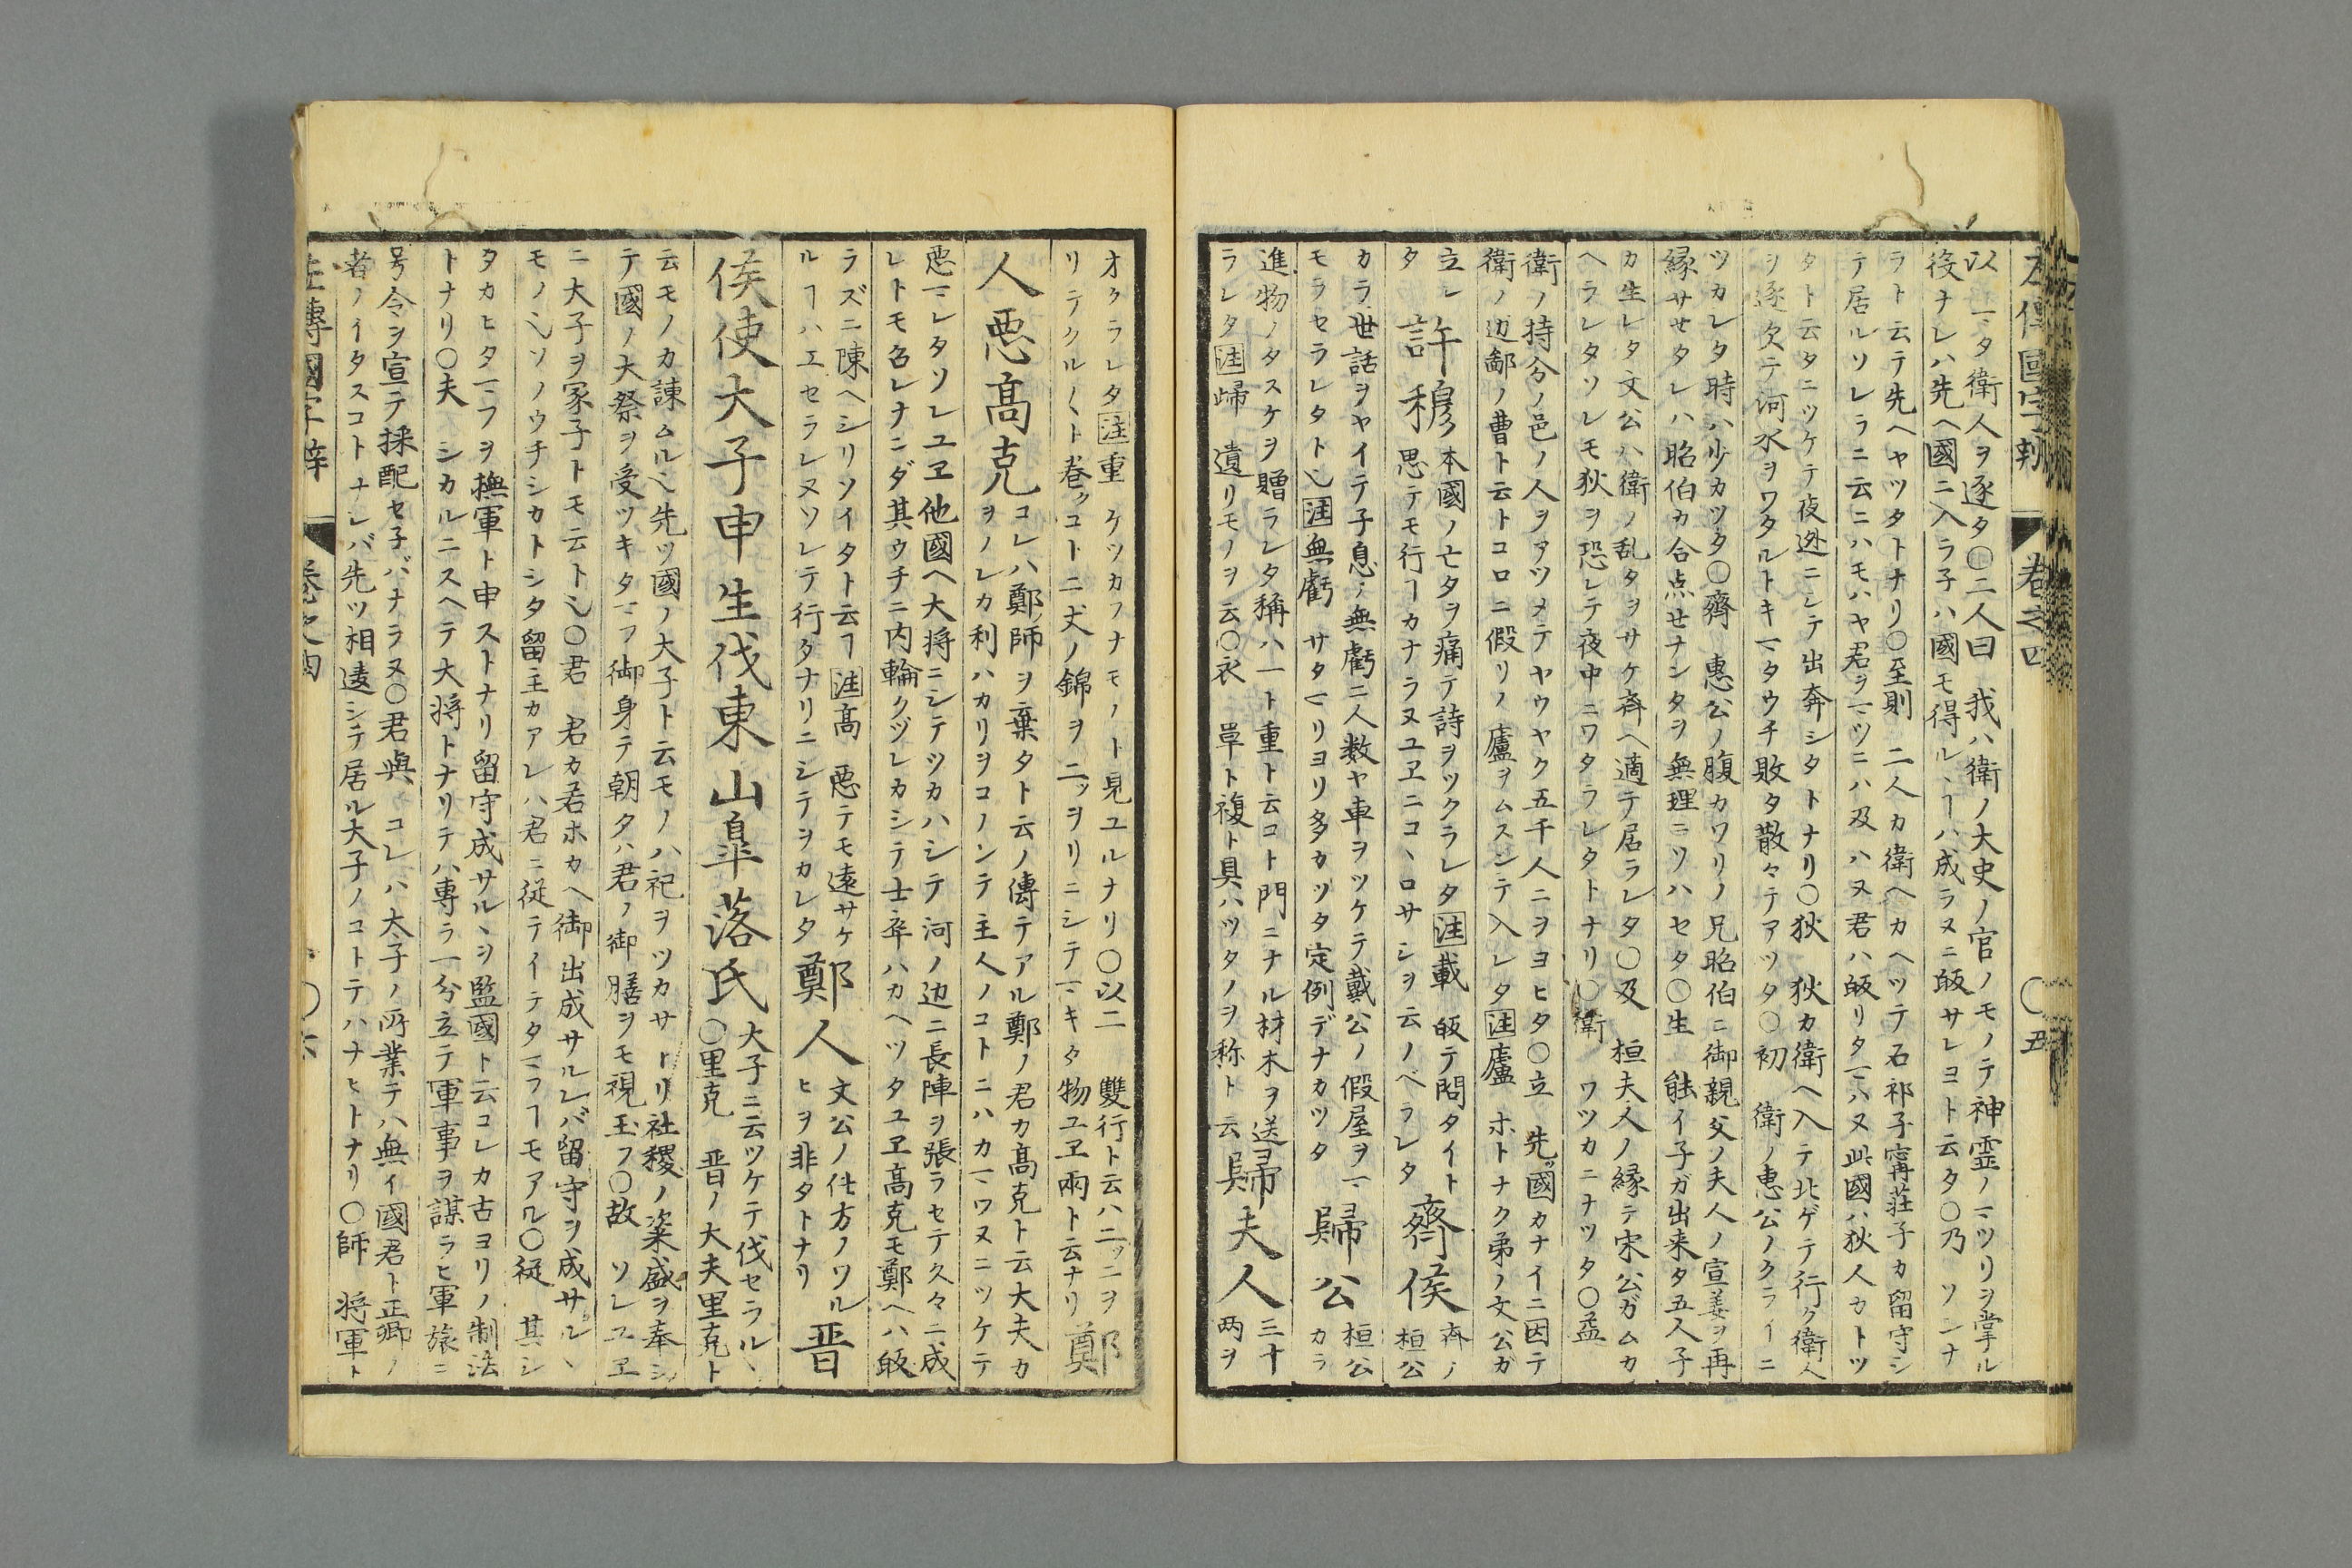 左傳國字辨 卷之四 ○五
以 一タ衛人ヲ逐タ○二人曰 我ハ衛ノ大史ノ官ノモノテ神霊ノマツリヲ掌ル
役ナレハ先ヘ國ニ入ラ子ハ國モ得ルヽヿハ成ラヌニ皈サレヨト云タ○乃 ソンナ
ラト云テ先ヘヤツタトナリ○至則 二人カ衛ヘカヘツテ石祁子寗荘子カ留守シ
テ居ルソレラニ云ニハモハヤ君ラマツニハ及ハヌ君ハ皈リタマハヌ此國ハ狄人カトツ
タト云タニツケテ夜迯ニシテ出奔シタトナリ○狄 狄カ衛ヘ入テ北ゲテ行ク衛人
ヲ逐欠テ河水ヲワタルトキマタウチ敗タ散々テアツタ○初 衛ノ惠公ノクライニ
ツカレタ時ハ少カツタ○齊 惠公ノ腹カワリノ兄昭伯ニ御親父ノ夫人ノ宣姜ヲ再
縁サセタレハ昭伯カ合点せナンタヲ無理ニソハセタ○生 䏻イ子ガ出来タ五人子
カ生レタ文公ハ衛ノ乱タヲサケ斉ヘ適テ居ラレタ○及 桓夫人ノ縁テ宋公ガムカ
ヘラレタソレモ狄ヲ恐レテ夜中ニワタラレタトナリ○衛 ワツカニナツタ○益
衛ノ持分ノ邑ノ人ヲアツメテヤウヤク五千人ニヲヨヒタ○立 先ッ國カナイニ因テ
衛ノ辺鄙ノ曹ト云トコロニ假リノ廬ヲムスンテ入レタ注廬 ホトナク弟ノ文公ガ
立レ 許穆 本國ノ亡タヲ痛テ詩ヲツクラレタ注載 皈テ問タイト 齊侯 斉ノ
タ 思テモ行ヿカナラヌユヱニコヽロサシヲ云ノベラレタ 桓公
カラ世話ヲヤイテ子息ノ無虧ニ人数ヤ車ヲツケテ戴公ノ假屋ヲマ 歸公 桓公
モラセラレタト也注無虧 サタマリヨリ多カツタ定例デナカツタ カラ
進物ノタスケヲ贈ラレタ稱ハ一ト重ト云コト門ニナル材木ヲ送ヨ 歸夫人 三十
ラレタ注歸 遺リモノヲ云○衣 單ト複ト具ハツタノヲ称ト云 両ヲ
オクラレタ注重 ケツカフナモノト見ユルナリ○以二 雙行ト云ハ二ッニヲ 鄭
リテクル〱ト巻クコトニ丈ノ錦ヲ二ッヲリニシテマキタ物ユヱ兩ト云ナリ
人惡高克 コレハ鄭師ヲ棄タト云ノ傳テアル鄭ノ君カ高克ト云大夫カ
ヲノレカ利ハカリヲコノンテ主人ノコトニハカマワヌニツケテ
惡マレタソレユヱ他國ヘ大将ニシテツカハシテ河ノ辺ニ長陣ヲ張ラセテ久々ニ成
レトモ召レナニダ其ウチニ内輪クヅレカシテ士卒ハカヘツタユヱ高克モ鄭ヘハ皈
ラズニ陳ヘシリソイタト云ヿ注高 惡テモ遠サケ 鄭人 文公ノ仕方ノワル 晋
ルヿハエセラレヌソレテ行タナリニシテヲカレタ ヒヲ非タトナリ
侯使大子申生伐東山皐落氏 大子ニ云ツケテ伐セラルヽ
○里克 晋ノ大夫里克ト
云モノカ諫ムル也先ツ國ノ大子ト云モノハ祀ヲツカサトリ社稷ノ粢盛ヲ奉シ
テ國ノ大祭ヲ受ツキタマフ御身テ朝タハ君ノ御膳ヲモ視玉フ○故 ソレユヱ
ニ大子ヲ冢子トモ云ト也○君 君カ若ホカヘ御出成サルレバ留守ヲ成サルヽ
モノ也ソノウチシカトシタ留主カアレハ君ニ従テイテタマフヿモアル○従 其シ
タカヒタマフヲ撫軍ト申ストナリ留守成サルヽヲ監國ト云コレカ古ヨリノ制法
トナリ○夫 シカルニスヘテ大将トナリテハ専ラ一分立テ軍事ヲ謀ラヒ軍旅ニ
号令ヲ宣テ採配セ子バナラヌ○君與 コレハ大子ノ所業テハ無イ國君ト正卿ノ
者ノイタスコトナレバ先ツ相遠シテ居ル大子ノコトテハナヒトナリ○師 将軍ト
左傳國字辨 卷之四 ○六